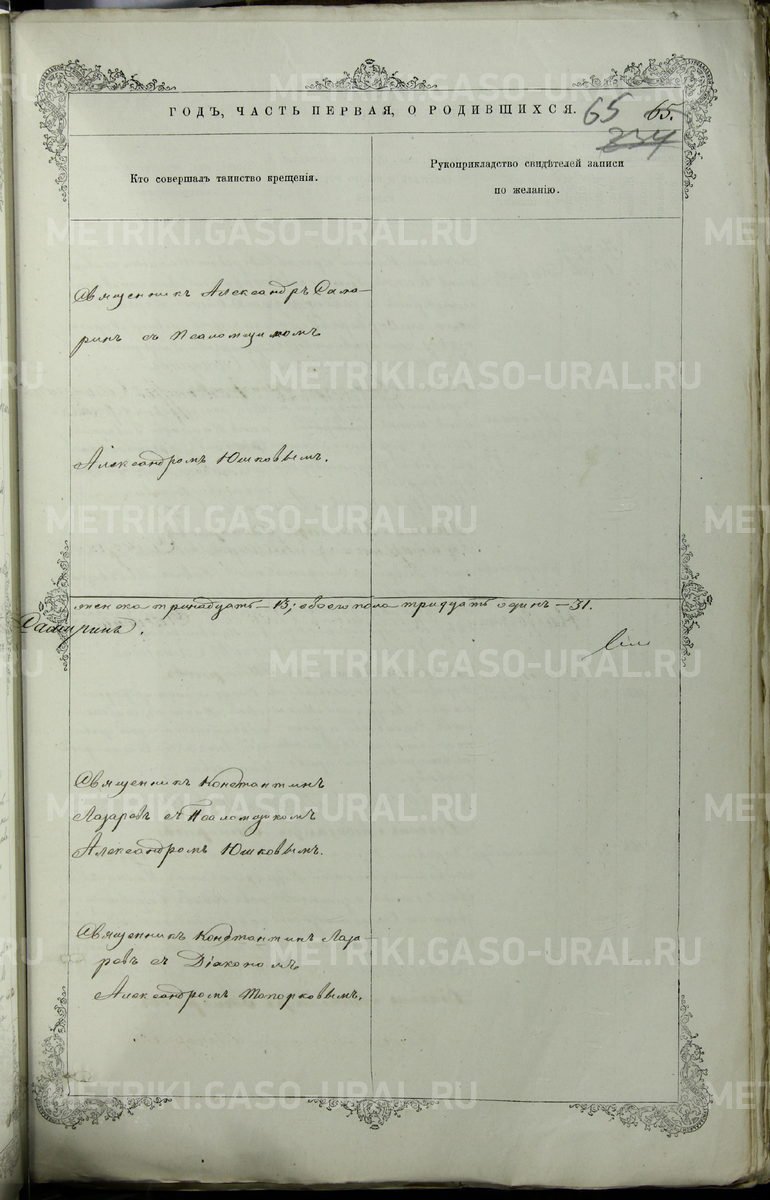 ГОДЪ, ЧАСТЬ ПЕРВАЯ, О РОДИВШИХСЯ.
65 65.
234
Кто совершалъ таинство крещенія.
Рукоприкладство свидѣтелей записи
по желанію.
Священникъ Александръ
съ Псаломщикомъ
Александромъ Юшковымъ.
женска тринадцать — 13; обоего пола тридцать одинъ — 31.
Священникъ Константинъ
Лазаревъ съ Псаломщикомъ
Александромъ Юшковымъ.
Священникъ Константинъ Лаза-
ревъ съ Діакономъ
Александромъ Топорковымъ.
METRIKI.GASO-URAL.RU